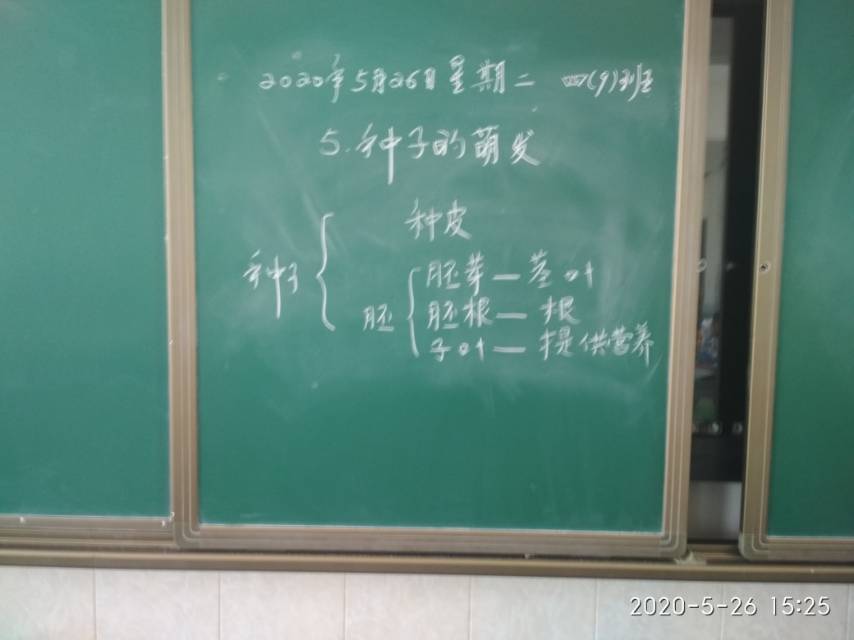 2020年5月26日星期二 四(9)班
5.种子的萌发
种皮
种子
胚芽—茎叶
胚 胚根—根
子叶—提供营养
2020-5-26 15:25